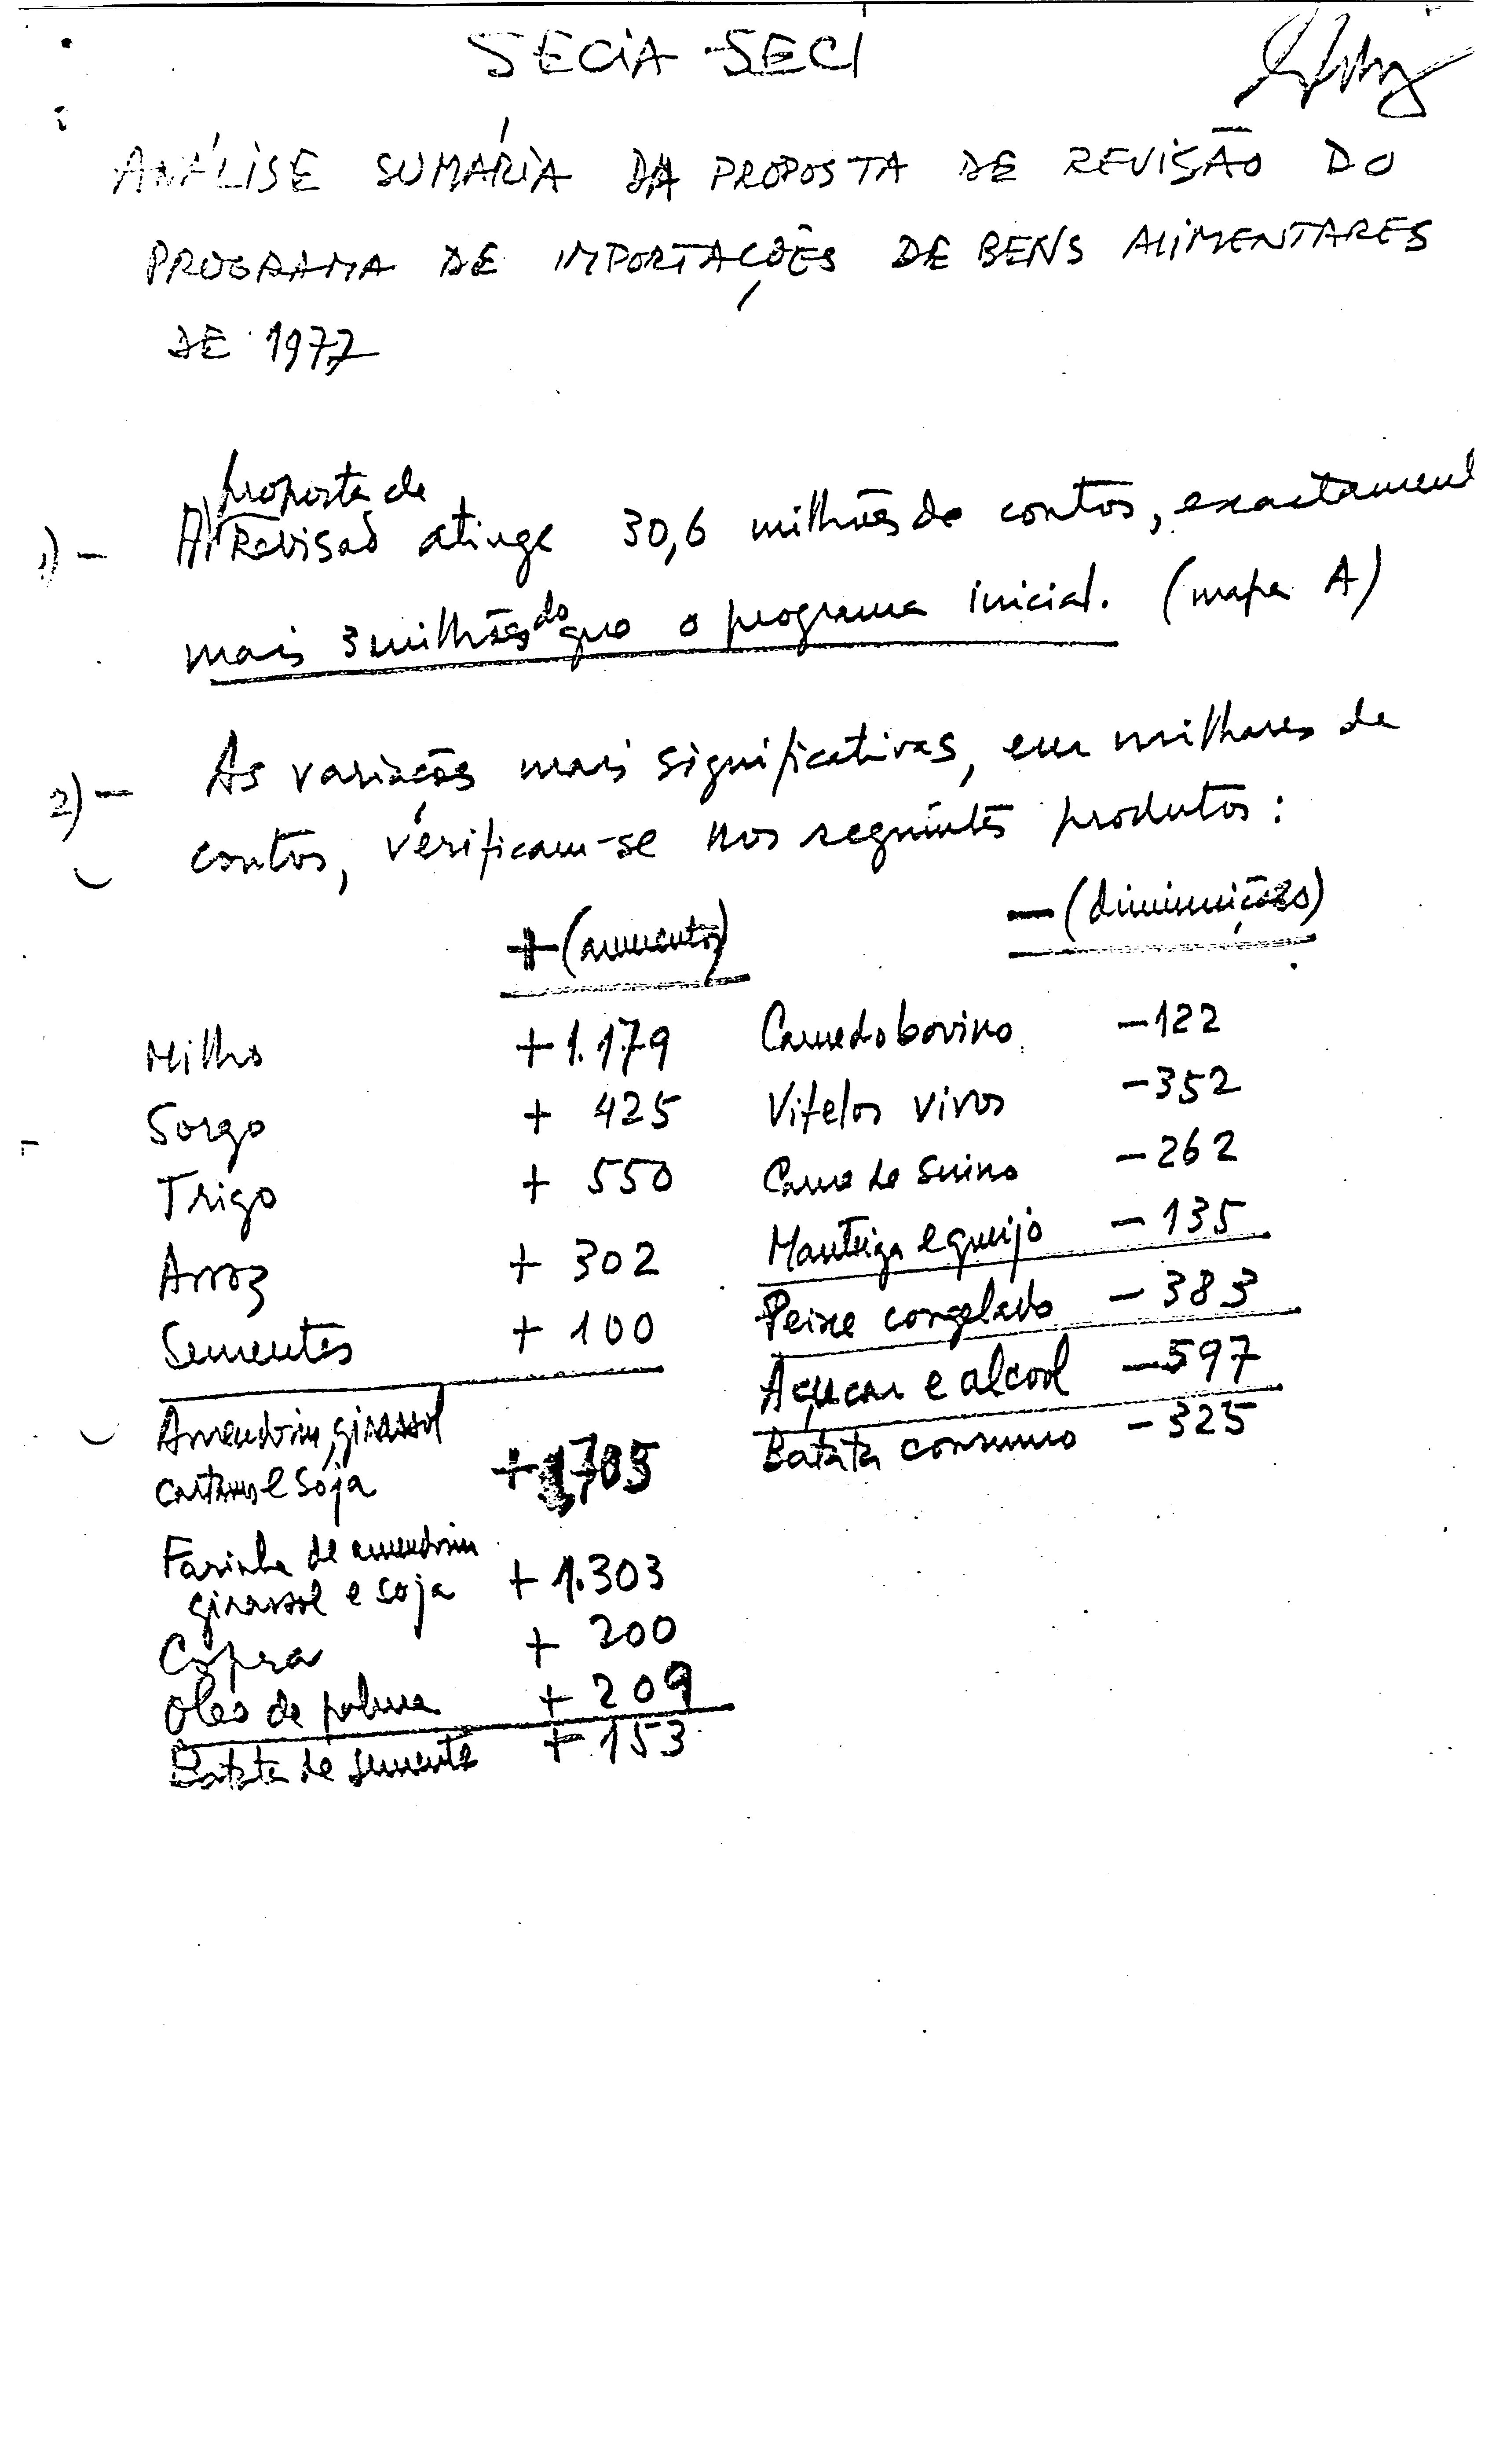 SECIA-SECI
ANÁLISE SUMÁRIA DA PROPOSTA DE REVISÃO DO
PROGRAMA DE IMPORTAÇÕES DE BENS ALIMENTARES
DE 1977
proposta de
1) - A Revisão atinge 30,6 milhões de contos, exactament
mais 3 milhões do que o programa inicial. (mapa A)
2) - As variações mais significativas, em milhares de
contos, verificam-se nos seguintes produtos:
+ (aumentos) - (diminuições)
Milho +1.179 Carne de bovino -122
Sorgo + 425 Vitelos vivos -352
Trigo + 550 Carne de suino -262
Arroz + 302 Manteiga e queijo -135
Sementes + 100 Peixe congelado -383
Açucar e alcool -597
Amendoim, girassol Batata consumo -325
cartamo e soja
Farinha de amendoim
girassol e soja +1.303
Copra + 200
Oleo de palma + 209
Batata de semente + 153